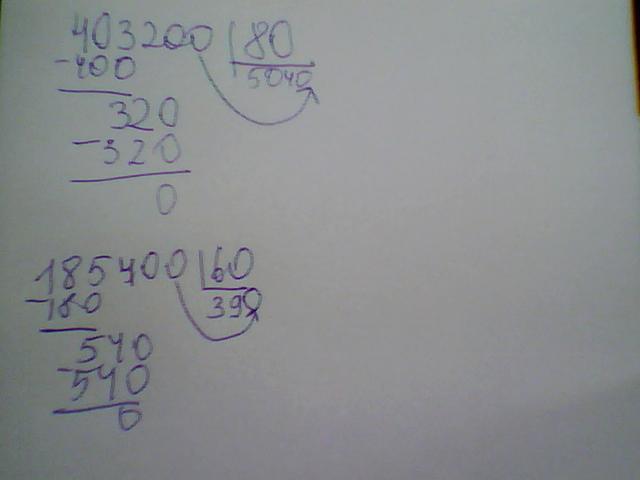 403200 80
-400 5040
320
-320
0
185400 60
-180 390
540
-540
0